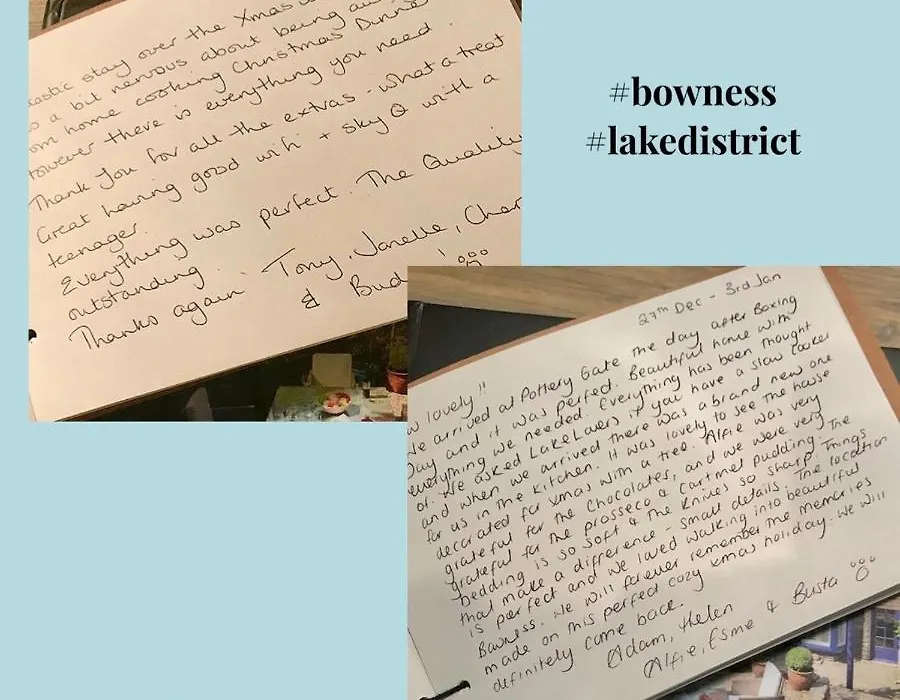 stay over the Xmas
a bit nervous about being
home cooking Christmas Dinner
however there is everything you need.
Thank You for all the extras - what a treat
Great having good wifi + Sky Q with a
teenager.
Everything was perfect. The Quality
outstanding.
Thanks again Tony, Janelle, Char
& Bud
#bowness
#lakedistrict
27th Dec - 3rd Jan
lovely!!
We arrived at Pottery Gate the day after Boxing
Day and it was perfect. Beautiful home with
everything we needed. Everything has been thought
of. We asked LakeLovers if you have a slow cooker
and when we arrived there was a brand new one
for us in the kitchen. It was lovely to see the house
decorated for xmas with a tree. Alfie was very
grateful for the chocolates, and we were very
grateful for the prosseco & Cartmel pudding. The
bedding is so soft & the knives so sharp. Things
that make a difference - small details. The location
is perfect and we loved walking into beautiful
Bowness. We will forever remember the memories
made on this perfect cozy xmas holiday. We will
definitely come back.
Adam, Helen
Alfie, Esme & Busta